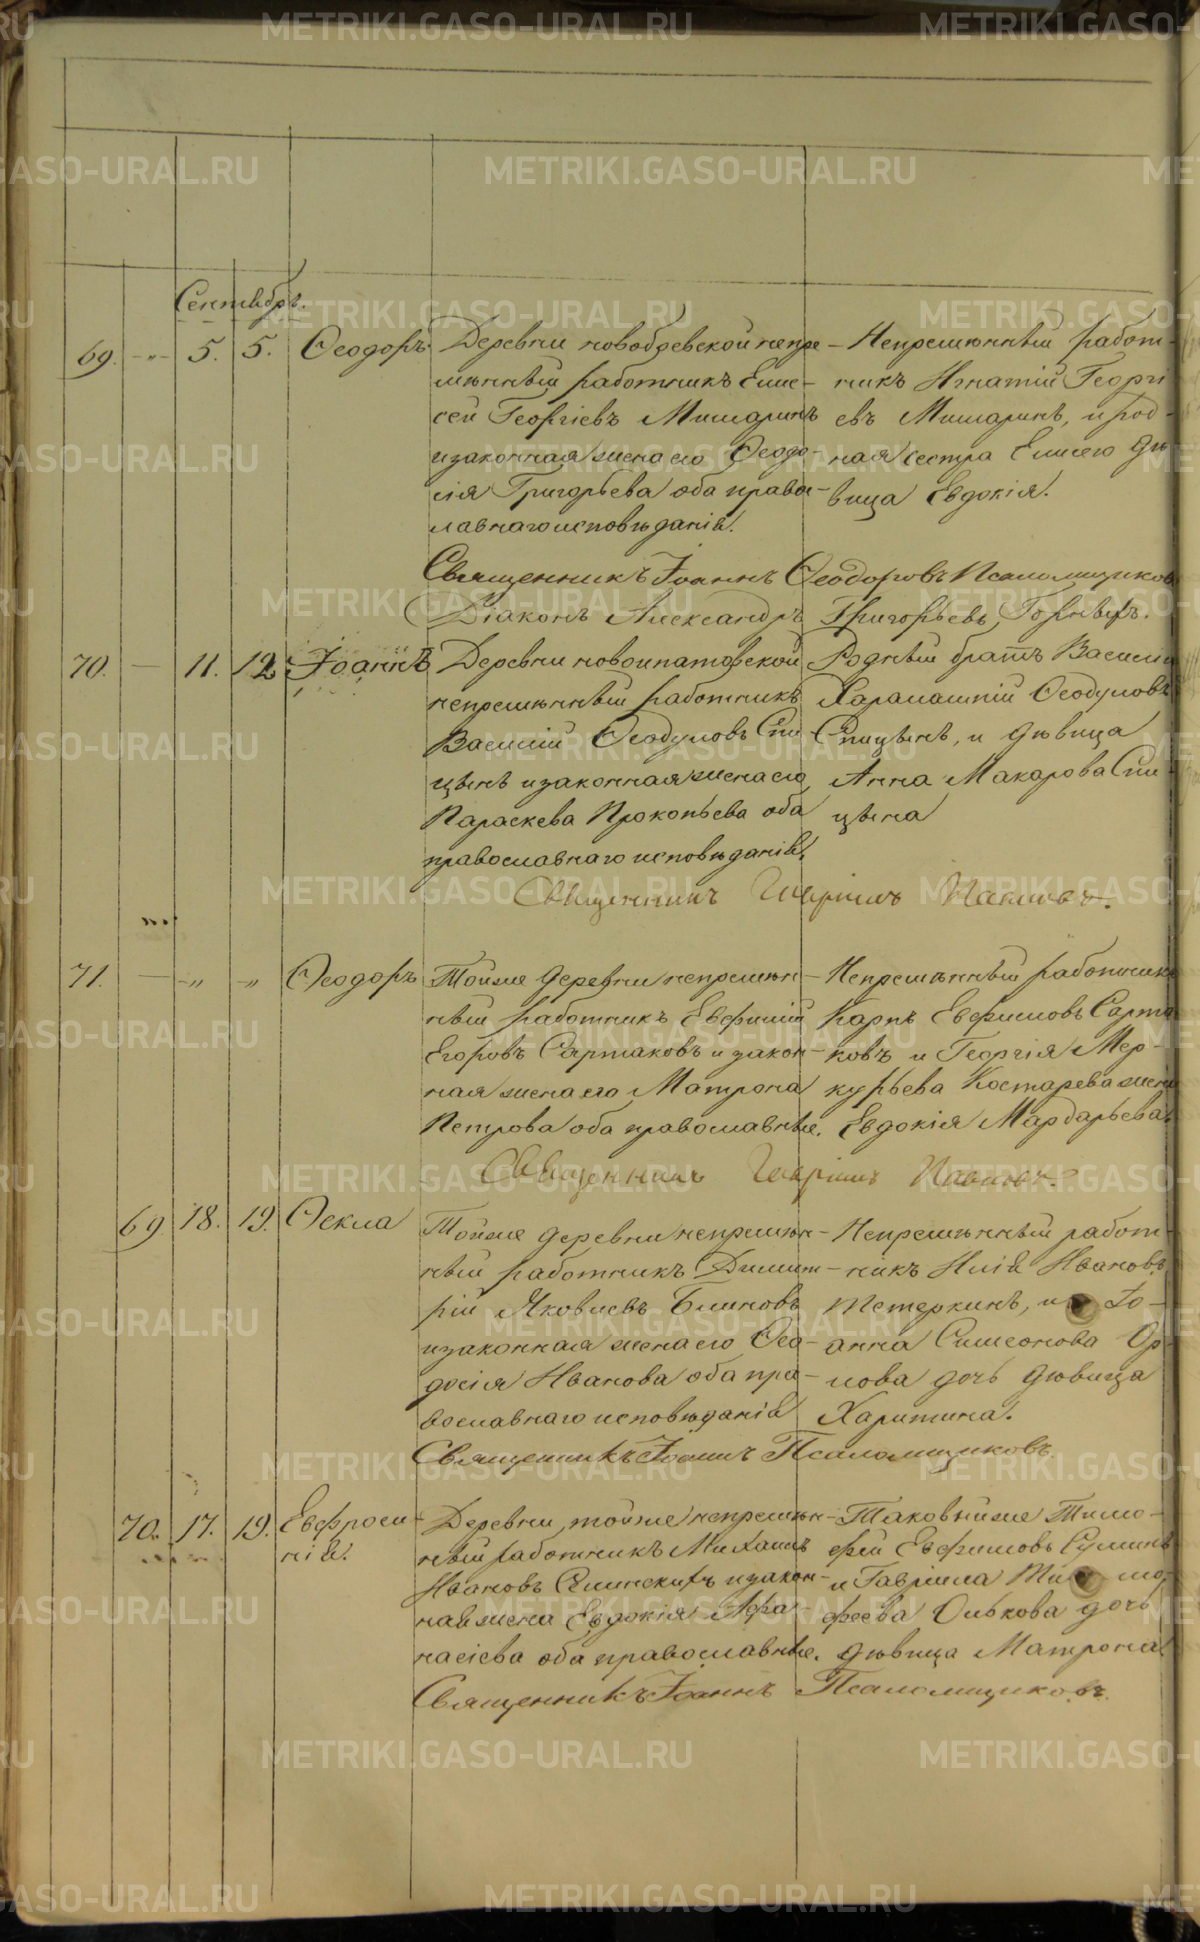 Сентябрь.
69. -„- 5. 5. Ѳеодоръ
Деревни новобревской непре-
мѣнный работникъ Елис-
сей Георгіевъ Мишаринъ
и законная жена его Ѳеодо-
сія Григорьева оба право-
славнаго исповѣданія.
Непремѣнный работ-
никъ Игнатій Георгі
евъ Мишаринъ, и род-
ная сестра Елисея дѣ
вица Евдокія.
Священникъ Іоаннъ Ѳеодоровъ Псаломщиковъ
Діаконъ Александръ Григорьевъ
70. — 11. 12 Іоаннъ
Деревни новоипатовской
непремѣнный работникъ
Василій Ѳеодуловъ Спи
цынъ и законная жена его
Параскева Прокопьева оба
православнаго исповѣданія.
Родный братъ Василія
Харалампій Ѳеодуловъ
Спицынъ, и дѣвица
Анна Макарова Спи-
цына
Священникъ Гавріилъ
71. — -„ -„ Ѳеодоръ
Тойже деревни непремѣн-
ный работникъ Евфимій
Егоровъ Сартаковъ и закон-
ная жена его Матрона
Петрова оба православные.
Непремѣнный работникъ
Карпъ Евфимовъ Сарта
ковъ и Георгія Мер-
курьева Костарева жена
Евдокія Мардарьева.
Священникъ Гавріилъ
69 18. 19. Ѳекла
Тойже деревни непремѣн-
ный работникъ Димит-
рій Яковлевъ Блиновъ
и законная жена его Ѳео-
досія Иванова оба пра-
вославнаго исповѣданія
Непремѣнный работ-
никъ Илія Ивановъ
Тетеркинъ, и Іо-
анна Симеонова Ор-
лова дочь дѣвица
Харитина.
Священникъ Іоаннъ Псаломщиковъ.
70. 17. 19. Евфроси-
нія.
Деревни тойже непремѣн-
ный работникъ Михаилъ
Ивановъ и закон-
ная жена Евдокія Афа-
насіева оба православные.
Таковыйже Тимо-
фей Евфимовъ
и Гавріила Тимо
феева Олькова дочь
дѣвица Матрона
Священникъ Іоаннъ Псаломщиковъ.
METRIKI.GASO-URAL.RU